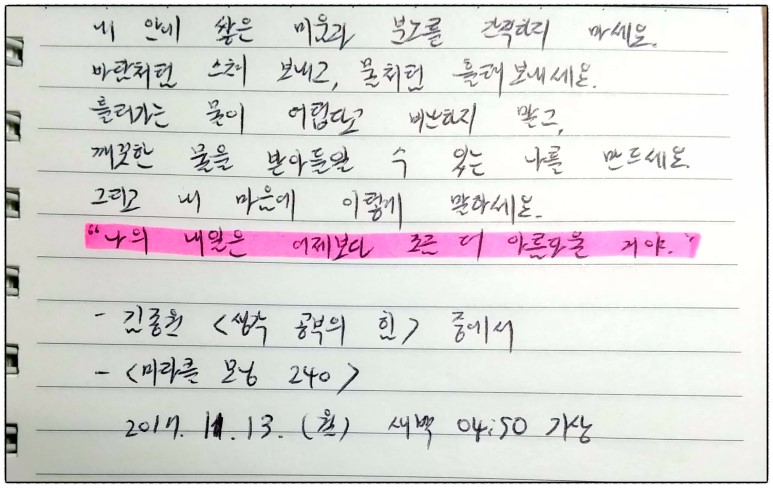 내 안에 쌓은 미움과 분노를 간직하지 마세요.
바람처럼 스쳐 보내고, 물처럼 흘려보내세요.
흘러가는 물이 어렵다고 비난하지 말고,
깨끗한 물을 받아들일 수 있는 나를 만드세요.
그리고 내 마음에 이렇게 말하세요.
"나의 내일은 어제보다 조금 더 아름다울 거야."
- 김종원 <생각 공부의 힘> 중에서
- <미라클 모닝 240>
2017. 11. 13. (월) 새벽 04:50 기상